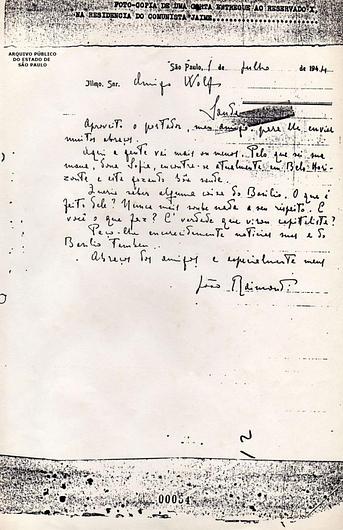 FOTO-COPIA DE UMA CARTA ENTREGUE AO RESERVADO X,
NA RESIDENCIA DO COMUNISTA JAIME
ARQUIVO PÚBLICO
DO ESTADO DE
SÃO PAULO
São Paulo, 1 de julho de 1944
Illmo. Snr. Amigo Wolf
Saude
Aproveito o portador, meu amigo, para lhe enviar
muitos abraços.
Aqui a gente vai mais ou menos. Pelo que sei sua
mana, Dona Sofia, encontra-se atualmente em Belo Hori-
zonte e está gozando boa saude.
Queria saber alguma coisa do Basilio. O que é
feito dele? Nunca mais soube nada a seu respeito. E
você o que faz? É verdade que virou capitalista?
Peço-lhe encarecidamente noticias suas e do
Basilio tambem.
Abraços dos amigos e especialmente meus
João Raimondi
12
00054